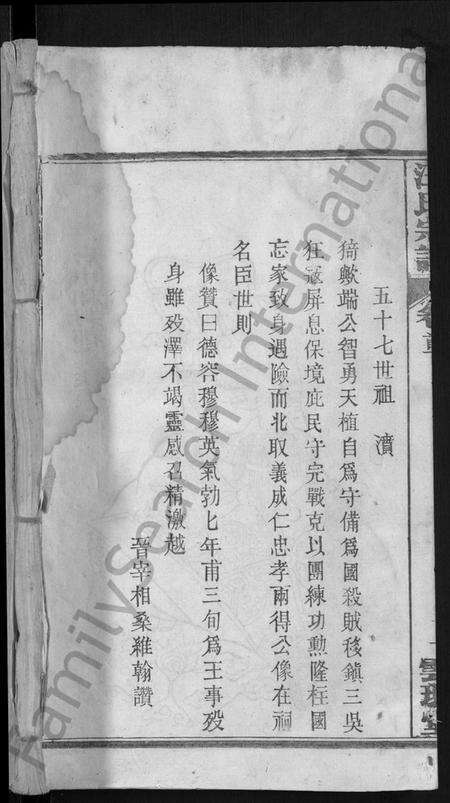 五十七世祖 濆
猗歟端公智勇天植自為守備為國殺賊移鎮三吳
狂寇屏息保境庇民守完戰克以團練功勲隆柱國
忘家致身遇險而北取義成仁忠孝兩得公像在祠
名臣世則
像贊曰德容穆穆英氣勃七年甫三旬為王事殁
身雖殁澤不竭靈感召精激越
晉宰相桑維翰讚
氏宗譜
卷首
FamilySearch International